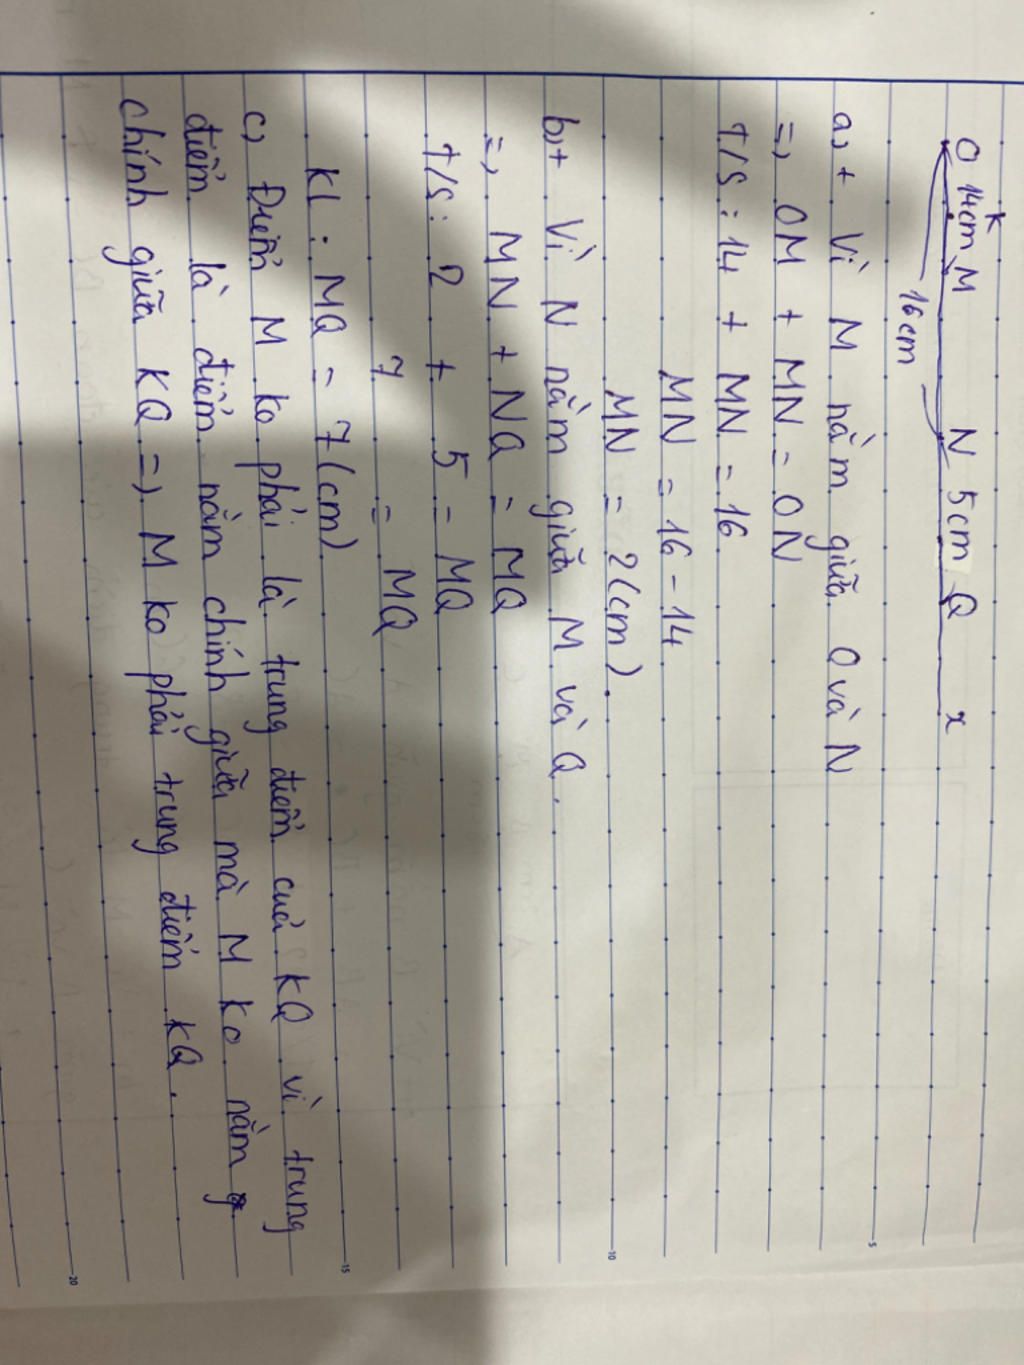 K
O 14cm M N 5cm Q x
16cm
a, + Vì M nằm giữa O và N
=, OM + MN = ON
T/S : 14 + MN = 16
MN = 16 - 14
MN = 2(cm).
b,+ Vì N nằm giữa M và Q.
=, MN + NQ = MQ
T/S: 2 + 5 = MQ
7 = MQ
Kl : MQ = 7(cm)
c, Điểm M ko phải là trung điểm của KQ vì trung
điểm là điểm nằm chính giữa mà M ko nằm
chính giữa KQ =, M ko phải trung điểm KQ.
5
10
15
20